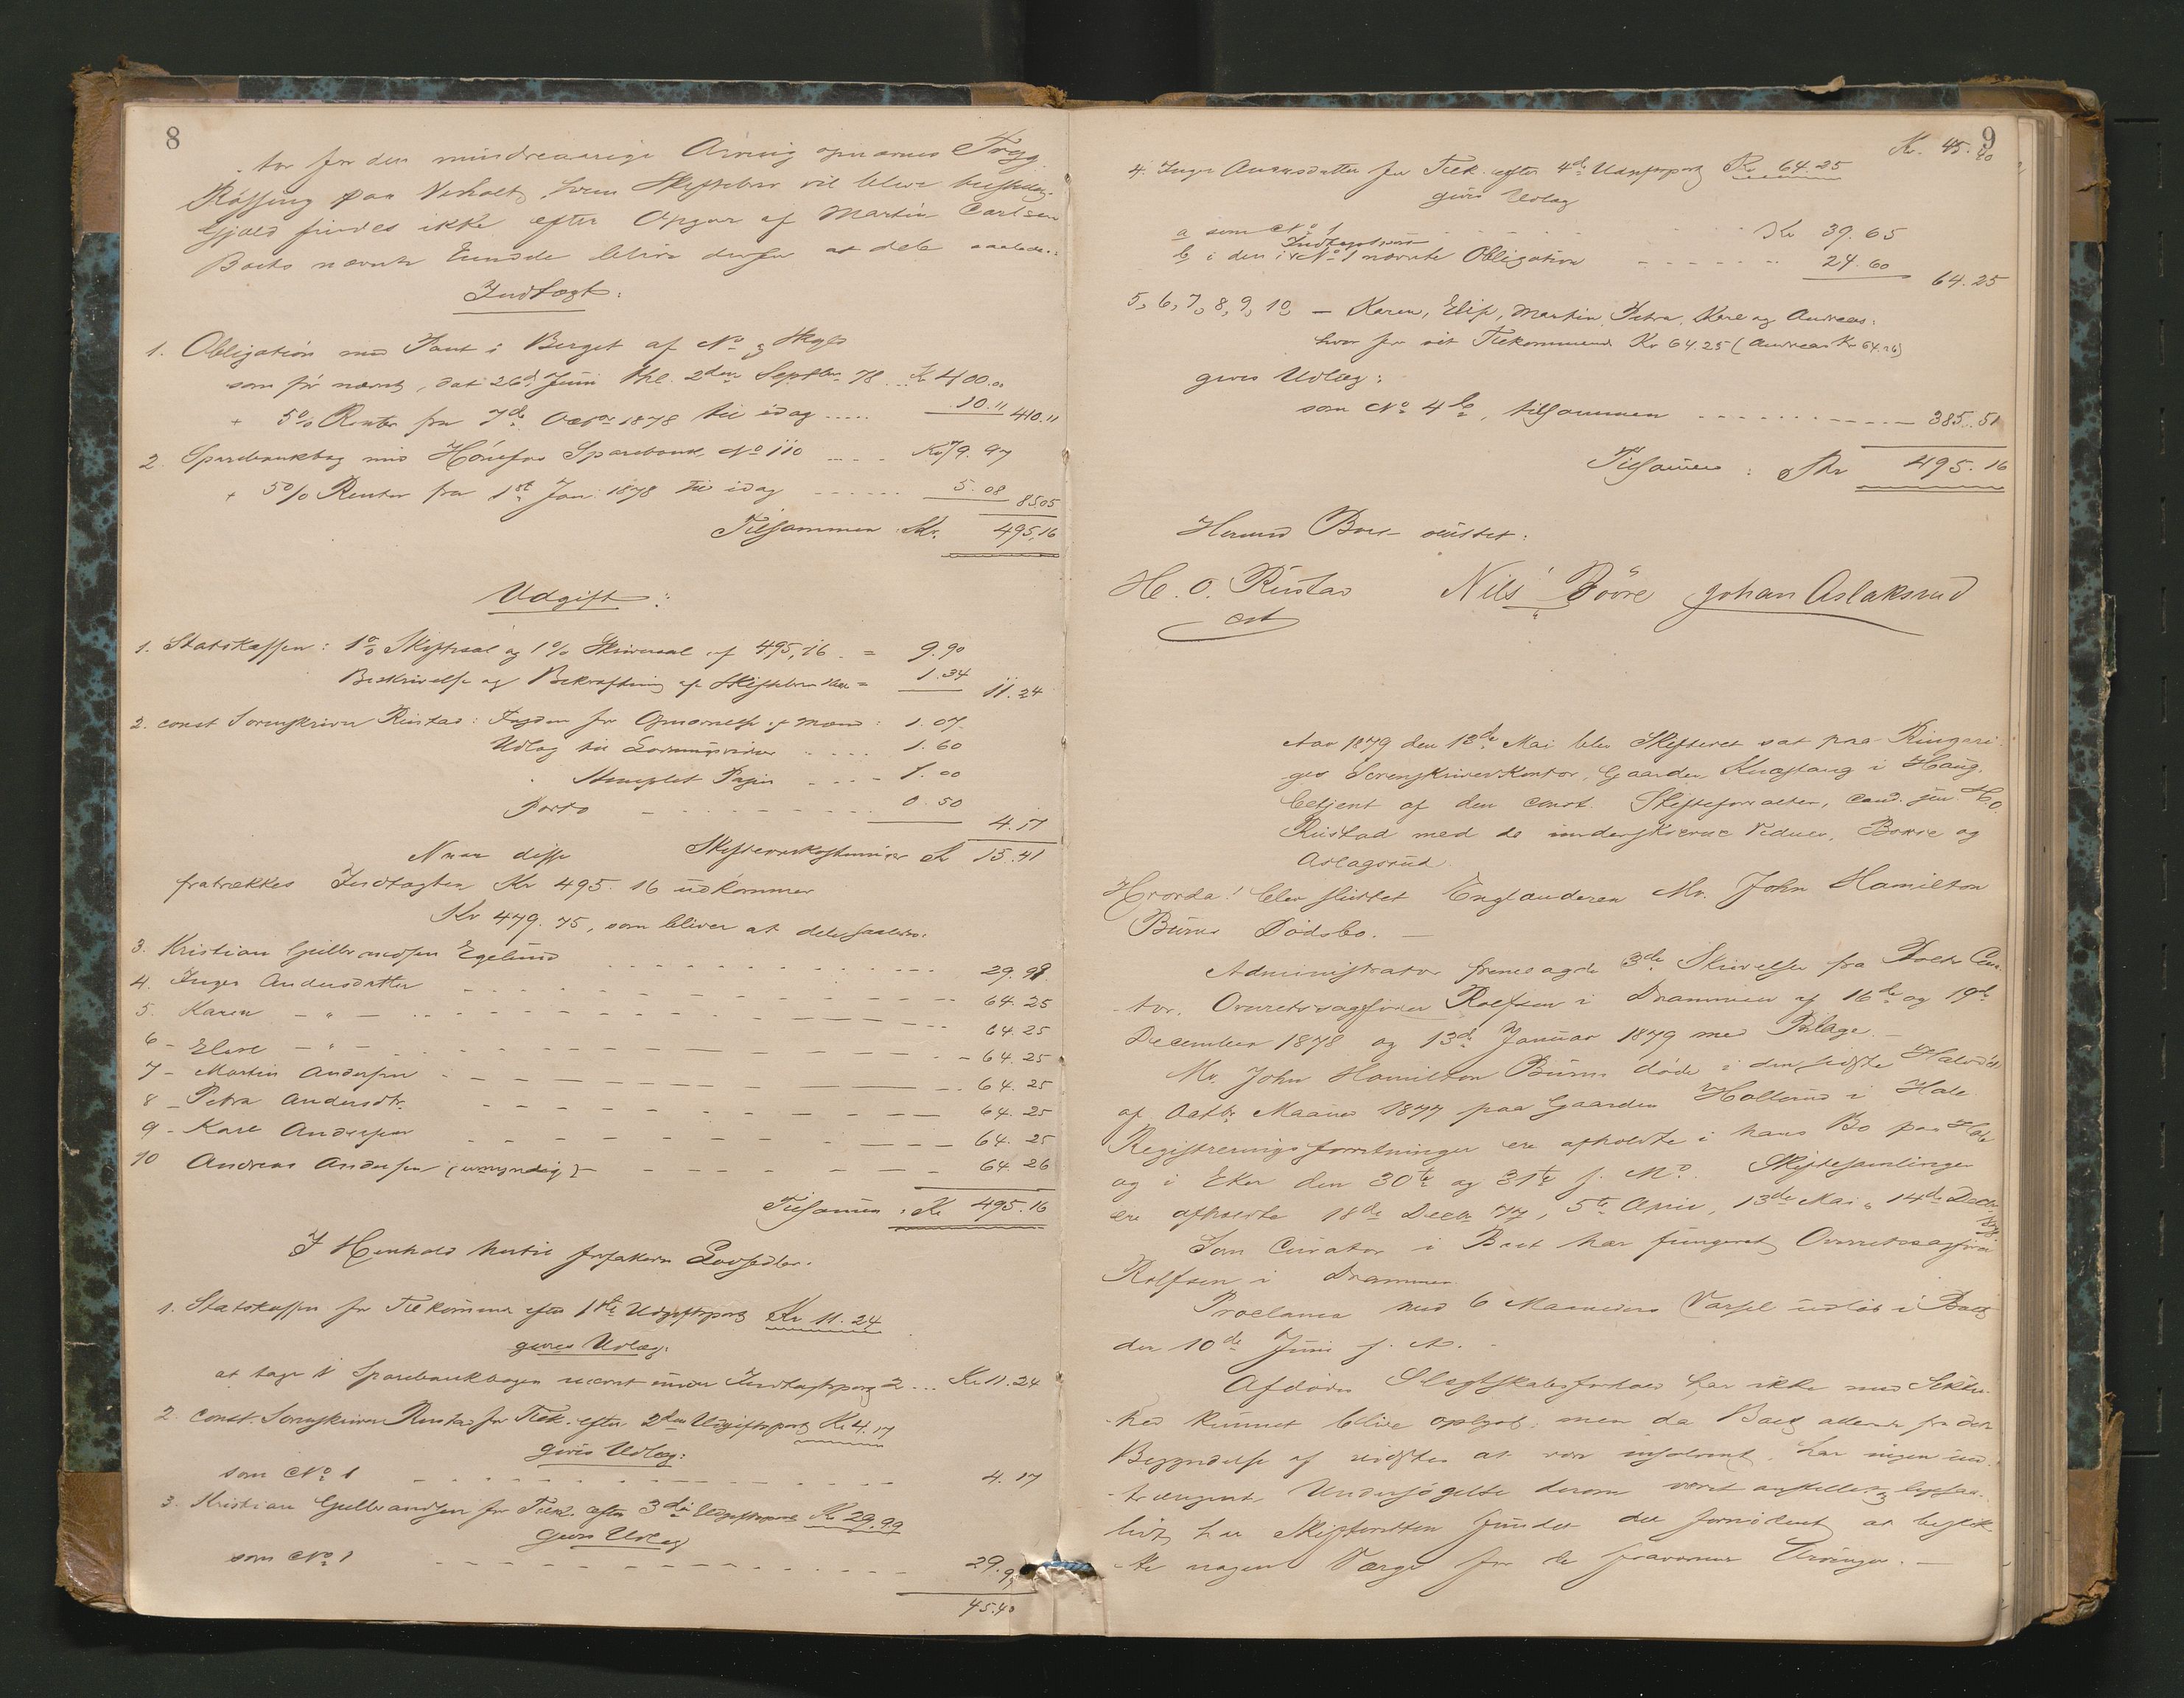 8
tor for den mindreaarige Arving opnævnes Trygg.
Røssing paa Veholt, hvem Skiftebrev vil blive
Gjæld findes ikke efter Opgave af Martin Carlsen
Boets nævnte Eiendele bliver derfor at dele saaledes:
Indtægt:
1. Obligation med Pant i Berget af No 3 Skyld
som før nævnt, dat 26de Juni thl. 2den Septbr. 78 .. Kr 400.00
+ 5% Renter fra 7de Octbr 1878 til idag ..... 10.11 410.11
2. Sparebankbog med Hønefos Sparebank No 110 .... Kr 79.97
+ 5% Renter fra 1st Jan. 1878 til idag ...... 5.08 85.05
Tilsammen Kr. 495.16
Udgift:
1. Statskassen: 1% Skiftesal og 1% Skriversal af 495,16 = 9.90
Beskrivelse og Bekræftning af Skiftebrevene = 1.34 11.24
2. const Sorenskriver Rustad: for Opnævnelse af Mænd: 1.07
Udlæg til Lavrettesvidner .... 1.60
Stemplet Papir .... 1.00
Porto ........ 0.50 4.17
Naar disse Skifteomkostninger Kr 15.41
fratrækkes Indtægten Kr 495.16 udkommer
Kr 479.75, som bliver at dele saaledes:
3. Kristian Gulbrandsen Egelund 29.99
4. Inger Andersdatter 64.25
5. Karen — " — 64.25
6 - Elise — " — 64.25
7 - Martin Andersen 64.25
8 - Petra Andersdtr. 64.25
9 - Karl Andersen 64.25
10 Andreas Andersen (umyndig) 64.26
Tilsammen: Kr 495.16
I Henhold hertil forfattedes Lodsedler.
1. Statskassen for Tilkommende efter 1ste Udgiftspost Kr 11.24
gives Udlæg:
at tage i Sparebankbogen nævnt under Indtægtspost 2 ... Kr 11.24
2. const. Sorenskriver Rustad for Tilk. efter 2den Udgiftspost Kr 4.17
gives Udlæg:
som No 1 4.17
3. Kristian Gulbrandsen for Tilk. efter 3die Udgiftspost Kr 29.99
gives Udlæg
som No 1 29.99
45.40
9
Kr. 45.40
4. Inger Andersdatter for Tilk. efter 4de Udgiftspost Kr 64.25
gives Udlæg
a som No 1 Kr 39.65
b i den i Indtægtspost No 1 nævnte Obligation 24.60
64.25
5, 6, 7, 8, 9, 10, — Karen, Elise, Martin, Petra, Karl og Andreas:
hver for sit Tilkommende Kr 64.25 (Andreas Kr 64.26)
gives Udlæg:
som No 4 b, tilsammen 385.51
Tilsammen: Kr 495.16
Hermed Boet sluttet:
H. O. Rustad Nils Böore Johan Aslaksrud
cst
Aar 1879 den 18de Mai blev Skifteret sat paa Ringeri-
ges Sorenskriverkontor, Gaarden Knæstang i Haug,
betjent af den const. Skifteforvalter, cand. jur. H. O.
Rustad med de underskrevne Vidner, Bøore og
Aslagsrud.
Hvorda: blev sluttet Englænderen Mr. John Hamilton
Burns Dødsbo. —
Administrator fremlagde 3de Skrivelser fra Boets Cura-
tor, Overretssagfører Rolfsen i Drammen af 16de og 19de
December 1878 og 13de Januar 1879 med Bilage. —
Mr. John Hamilton Burns døde i den sidste Halvdel
af Octbr. Maaned 1877 paa Gaarden Hollerud i Hole
Registreringsforretninger ere afholdte i hans Bo paa Hole
og i Eker den 30te og 31te s. Md. Skiftesamlinger
ere afholdte 18de Decbr 77, 5te April, 13de Mai, 14de Decbr 1878
Som Curator i Boet har fungeret Overretssagfører
Rolfsen i Drammen.
Proclama med 6 Maaneders Varsel udløb i Boet
den 10de Juni f. A. —
Afdødes Slægtskabsforhold har ikke med Sikker-
hed kunnet blive oplyst; men da Boet allerede fra dets
Begyndelse af vistes at være insolvent, har ingen ind-
trængende Undersøgelse derom været anstillet,
har Skifteretten fundet det fornødent at beskik-
ke nogen Værge for de fraværende Arvinger. —